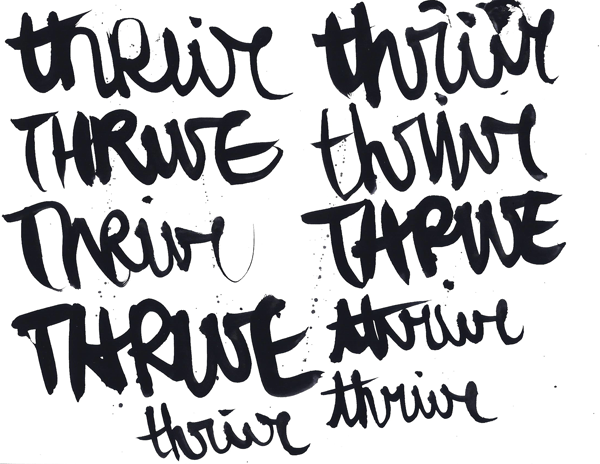 thrive thrive
THRIVE thrive
Thrive THRIVE
THRIVE thrive
thrive thrive